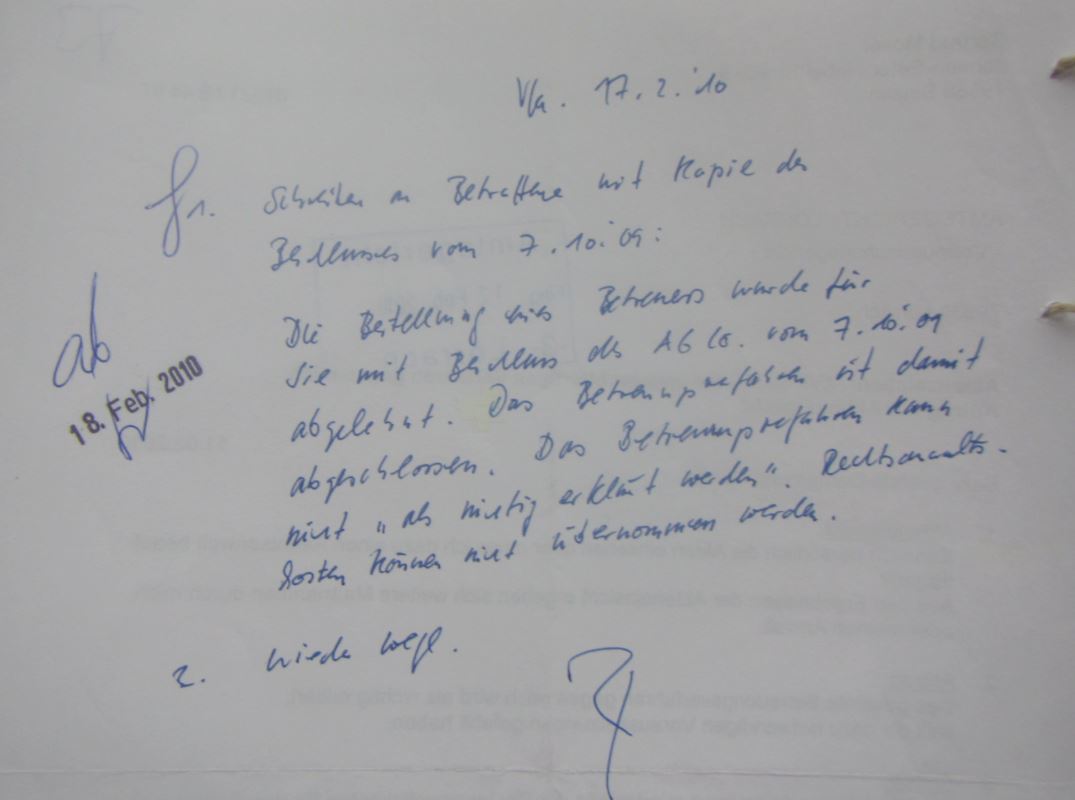 Vfg. 17.2.'10
1. Schreiben an Betroffene mit Kopie des
Beschlusses vom 7.10.'09:
Die Bestellung eines Betreuers wurde für
Sie mit Beschluss des AG Co. vom 7.10.09
abgelehnt. Das Betreuungsverfahren ist damit
abgeschlossen. Das Betreuungsverfahren kann
nicht „als nichtig erklärt werden". Rechtsanwalts-
kosten können nicht übernommen werden.
ab
18. Feb. 2010
2. wieder wegl.